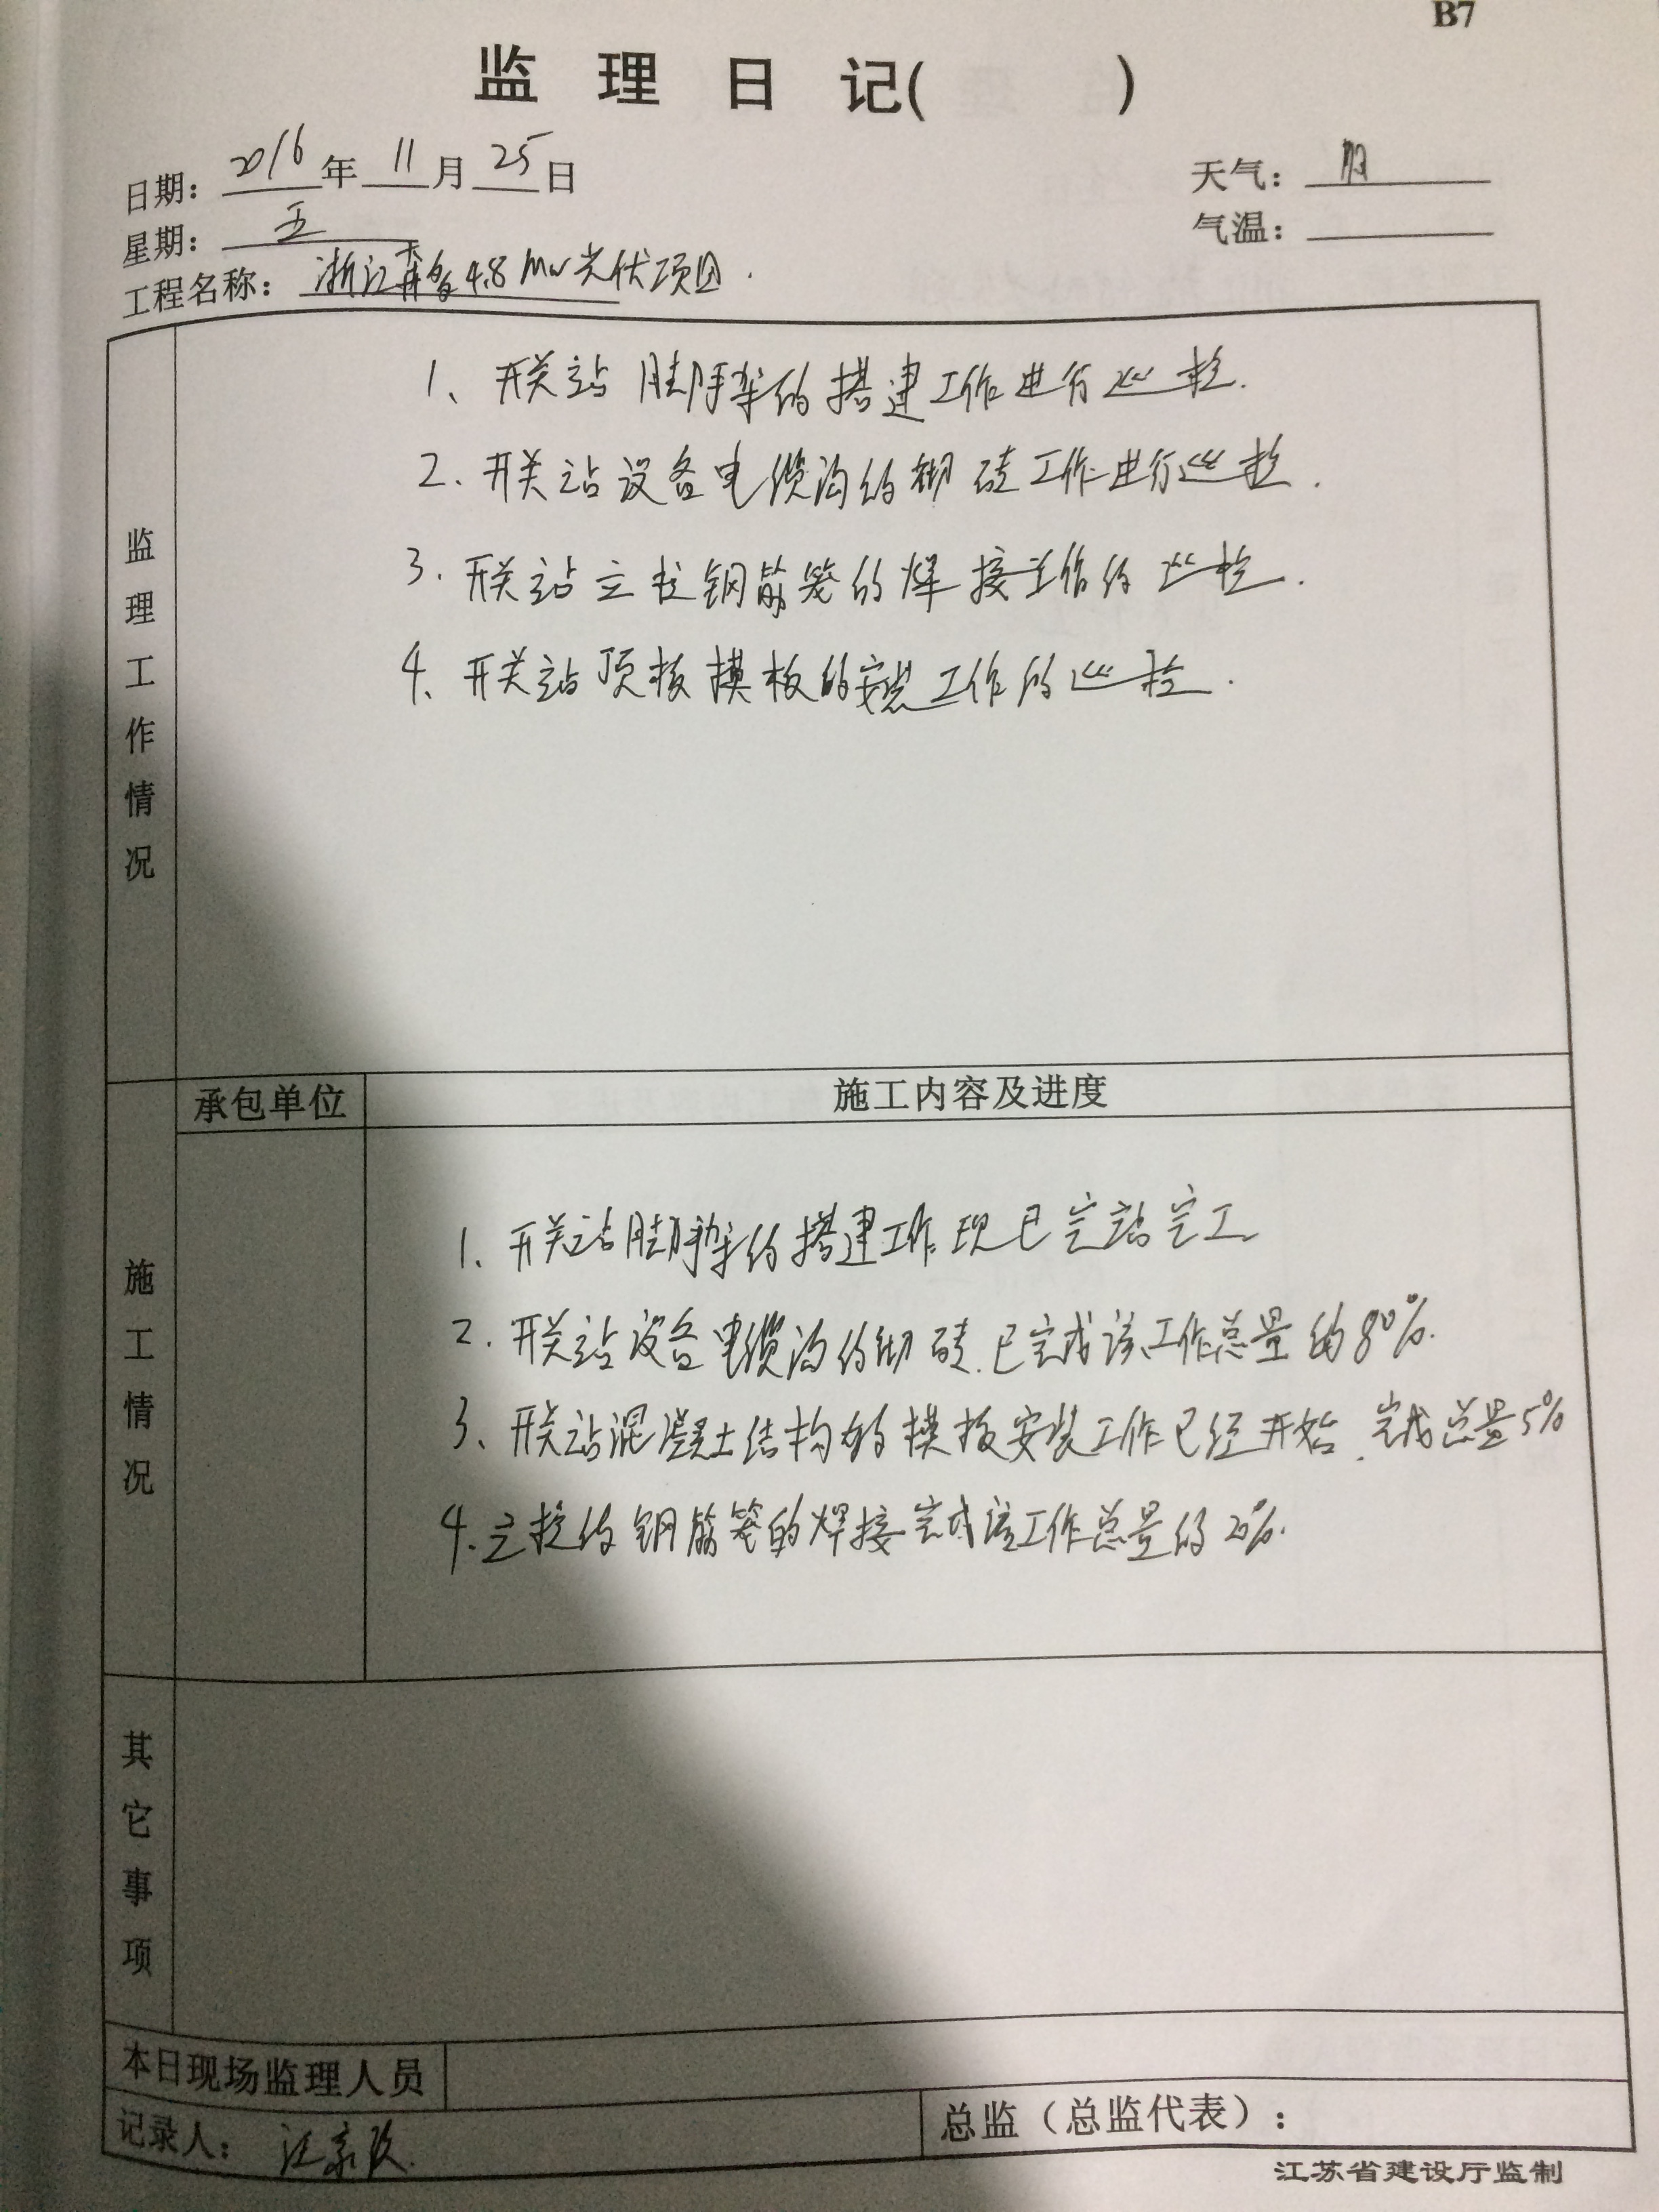 B7
监理日记( )
日期: 2016 年 11 月 25 日
天气:
星期: 五
气温:
工程名称: 浙江 4.8MW光伏项目.
监理工作情况
1、开关站脚手架的搭建工作进行巡检.
2、开关站设备电缆沟的砌砖工作进行巡检.
3、开关站立柱钢筋笼的焊接工作的巡检.
4、开关站顶板模板的安装工作的巡检.
承包单位
施工内容及进度
施工情况
1、开关站脚手架的搭建工作现已完 完工
2、开关站设备电缆沟的砌砖.已完成该工作总量的80%.
3、开关站混凝土结构的模板安装工作已经开始.完成总量5%
4、立柱的钢筋笼的焊接完成该工作总量的20%.
其它事项
本日现场监理人员
记录人:
总监（总监代表）:
江苏省建设厅监制